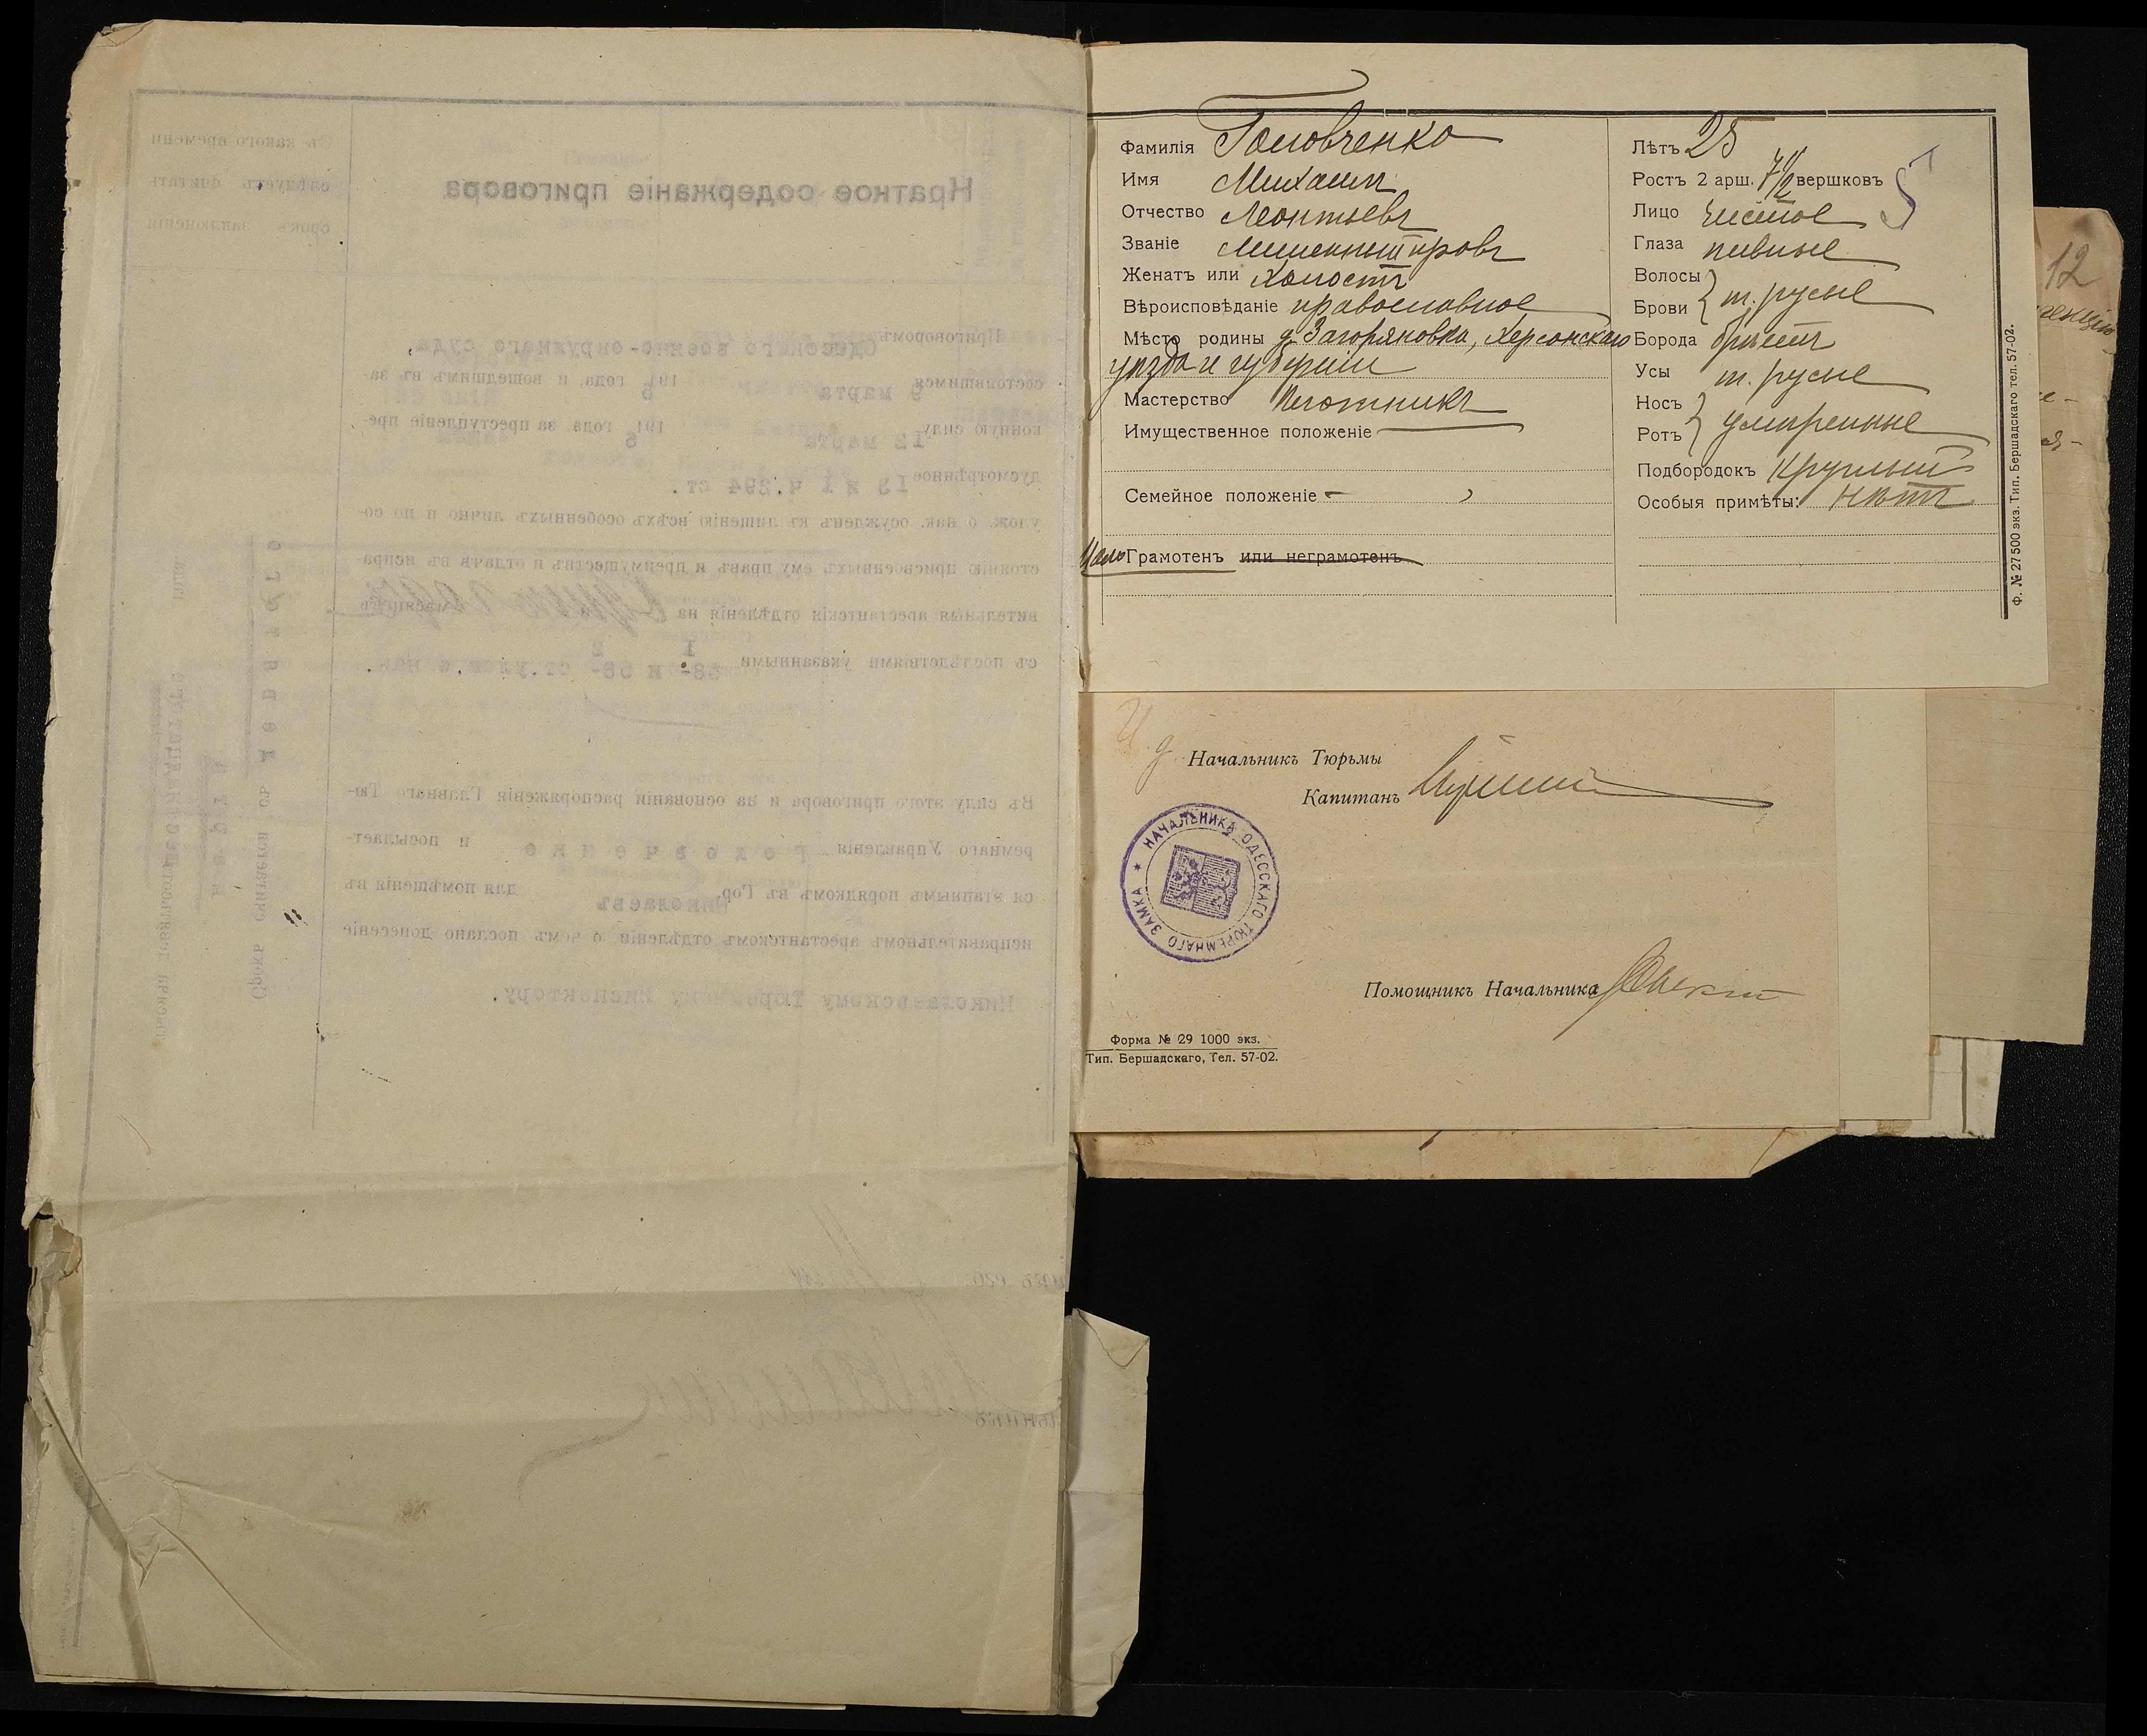 Краткое содержаніе приговора
Съ какого времени
слѣдуетъ считать
срокъ заключенія
Приговоромъ
Одесскаго военно-окружнаго суда,
состоявшимся 9 марта 191 6 года и вошедшимъ въ за-
конную силу 12 марта 191 6 года за преступленіе пре-
дусмотрѣнное 13 и 1 ч. 294 ст.
улож. о нак. осужденъ къ лишенію всѣхъ особенныхъ лично и по со-
стоянію присвоенныхъ ему правъ и преимуществъ и отдачѣ въ испра
вительныя арестантскія отдѣленія на
съ послѣдствіями указанными 58-1 и 58-2 ст. улож. о нак.
Въ силу этого приговора и на основаніи распоряженія Главнаго Тю-
ремнаго Управленія Головченко и посылает-
ся этапнымъ порядкомъ въ Гор. Николаевъ для помѣщенія въ
исправительномъ арестантскомъ отдѣленіи о чемъ послано донесеніе
Николаевскому Тюремному Инспектору.
Срокъ считается съ
Фамилія Головченко
Имя Михаилъ
Отчество Леонтьевъ
Званіе Лишенный правъ
Женатъ или Холостъ
Вѣроисповѣданіе православное
Мѣсто родины д. Загоряновка, Херсонскаго
уѣзда и губерніи
Мастерство Плотникъ
Имущественное положеніе —
Семейное положеніе —
Мало Грамотенъ или неграмотенъ
Лѣтъ 25
Ростъ 2 арш. 7 1/2 вершковъ
Лицо чистое
Глаза пивные
Волосы
Брови } т. русые
Борода брѣетъ
Усы т. русые
Носъ
Ротъ } умѣренные
Подбородокъ Круглый
Особыя примѣты: Нѣтъ
Ф. № 27 500 экз. Тип. Бершадскаго тел. 57-02.
12
И д Начальникъ Тюрьмы
Капитанъ
НАЧАЛЬНИКА ОДЕССКАГО ТЮРЕМНАГО ЗАМКА
Помощникъ Начальника
Форма № 29 1000 экз.
Тип. Бершадскаго, Тел. 57-02.